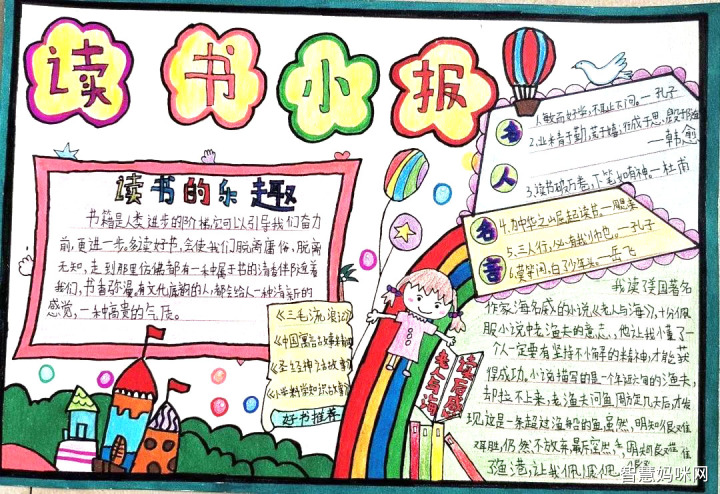 读书小报
名人名言
1.敏而好学,不耻下问。—孔子
2.业精于勤,荒于嬉;行成于思,毁于随
—韩愈
3.读书破万卷,下笔如有神。—杜甫
4.为中华之崛起读书。—周恩来
5.三人行,必有我师也。—孔子
6.莫等闲,白了少年头。—岳飞
读书的乐趣
书籍是人类进步的阶梯,它可以引导我们奋力
前,更进一步。多读好书,会使我们脱离庸俗,脱离
无知,走到那里仿佛都有一种属于书的清香伴随着
我们,书香弥漫。有文化底韵的人,都会给人一种清新的
感觉,一种高贵的气质。
《三毛流浪记》
《中国寓言故事》
《小学科学知识故事》
好书推荐
读后感
老人与海
我读了美国著名
作家海名威的小说《老人与海》,十分佩
服小说中老渔夫的意志,他让我懂了一
个人一定要有坚持不懈的精神,才能获
得成功。小说描写的是一个年近六旬的渔夫,
却拉不上来,老渔夫问鱼周旋几天后,才发
现这是一条超过渔船的鱼,虽然,明知很难
耳胜,仍然不放弃,
渔港,让我佩佩
智慧妈咪网